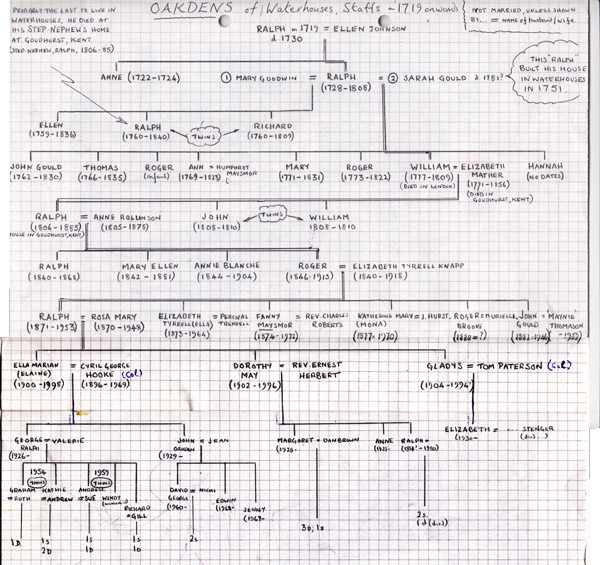 OAKDENS of Waterhouses, Staffs ~ 1719 onwards
PROBABLY THE LAST TO LIVE IN
WATERHOUSES, HE DIED AT
HIS STEP-NEPHEW'S HOME
AT GOUDHURST, KENT
(STEP-NEPHEW, RALPH, 1806-85)
NOT MARRIED, UNLESS SHOWN
BY... = NAME OF HUSBAND/WIFE.
RALPH m 1719 = ELLEN JOHNSON
d 1730
ANNE (1722-1724) ① MARY GOODWIN = RALPH = ② SARAH GOULD d. 1781?
(1728-1808)
THIS "RALPH"
BUILT HIS HOUSE
IN WATERHOUSES
IN 1751.
ELLEN RALPH TWINS RICHARD
(1759-1836) (1760-1840) (1760-1809)
JOHN GOULD THOMAS ROGER ANN = HUMPHREY MARY ROGER WILLIAM = ELIZABETH HANNAH
(1762-1830) (1766-1835) (infant) (1769-1823) MAYSMOR (1771-1831) (1773-1822) (1777-1809) MATHER (NO DATES)
(DIED IN LONDON) (1771-1856)
(DIED IN
GOUDHURST, KENT)
RALPH = ANNE ROLLINSON JOHN TWINS WILLIAM
(1806-1885) (1805-1878) (1808-1810) 1808-1810
HOUSE IN GOUDHURST, KENT)
RALPH MARY ELLEN ANNIE BLANCHE ROGER = ELIZABETH TYRRELL KNAPP
(1840-1868) (1842-1881) (1844-1904) (1846-1915) (1840-1918)
RALPH = ROSA MARY ELIZABETH = PERCIVAL FANNY = REV. CHARLES KATHERINE MARY = J. HURST, ROGER = MURIELLE, JOHN = MAYNIE
(1871-1953) (1870-1948) TYRRELL (ELLA) TRENDELL MAYSMOR ROBERTS (MONA) BROOKE GOULD THOMASON
(1873-1964) (1874-1972) (1877-1970)
ELLA MARIAN = CYRIL GEORGE DOROTHY = REV. ERNEST GLADYS = TOM PATERSON (Col.)
(ELAINE) HOOKE (Col) MAY HERBERT (1904-1994)
(1900-1998) (1896-1969) (1902-1996)
GEORGE = VALERIE JOHN = JEAN MARGARET = DAN BROWN ANNE RALPH = ELIZABETH = ... STENGER
RALPH OAKDEN
(1926- (1929- (1930-
1954 1959
TWINS TWINS
GRAHAM KATHIE ANDREW WENDY DAVID = NICKI EDWIN
= RUTH = ANDREW = SUE GEORGE JENNY
RICHARD (1960-
= GILL
1D. 1S 1S 1S 2S 3D, 1S 2S.
2D 1D 1D